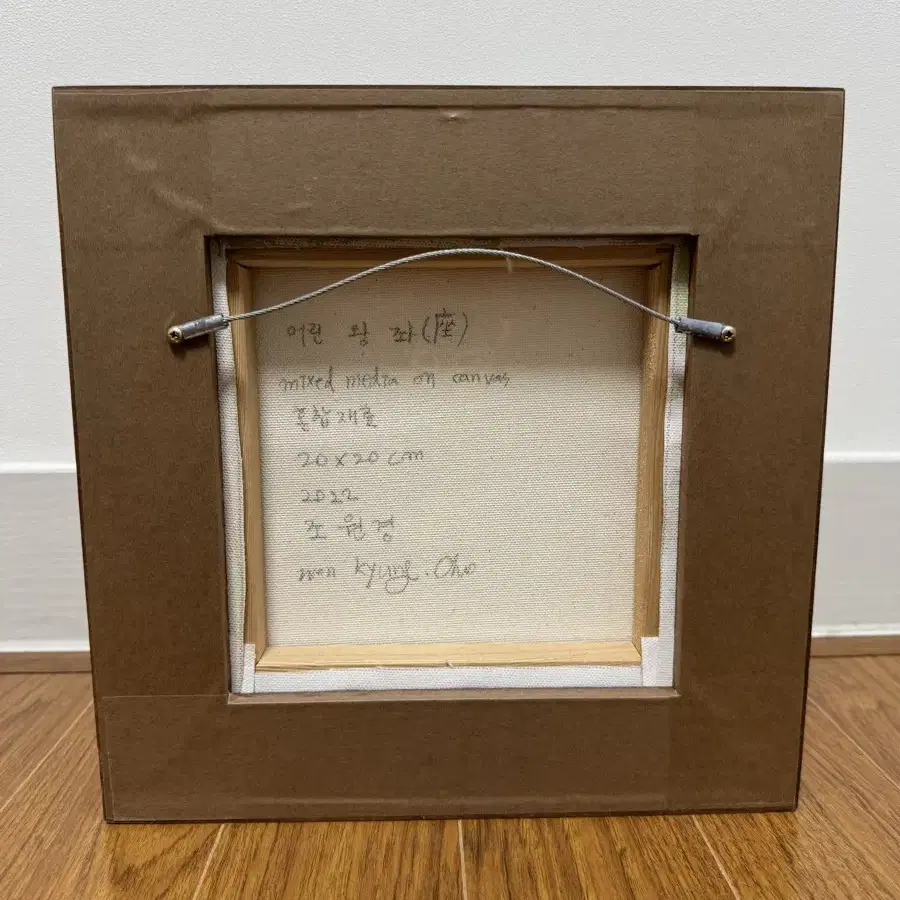 어린 왕 좌(座)
mixed media on canvas
혼합재료
20 x 20 cm
2022
조 원 경
won kyung. Cho